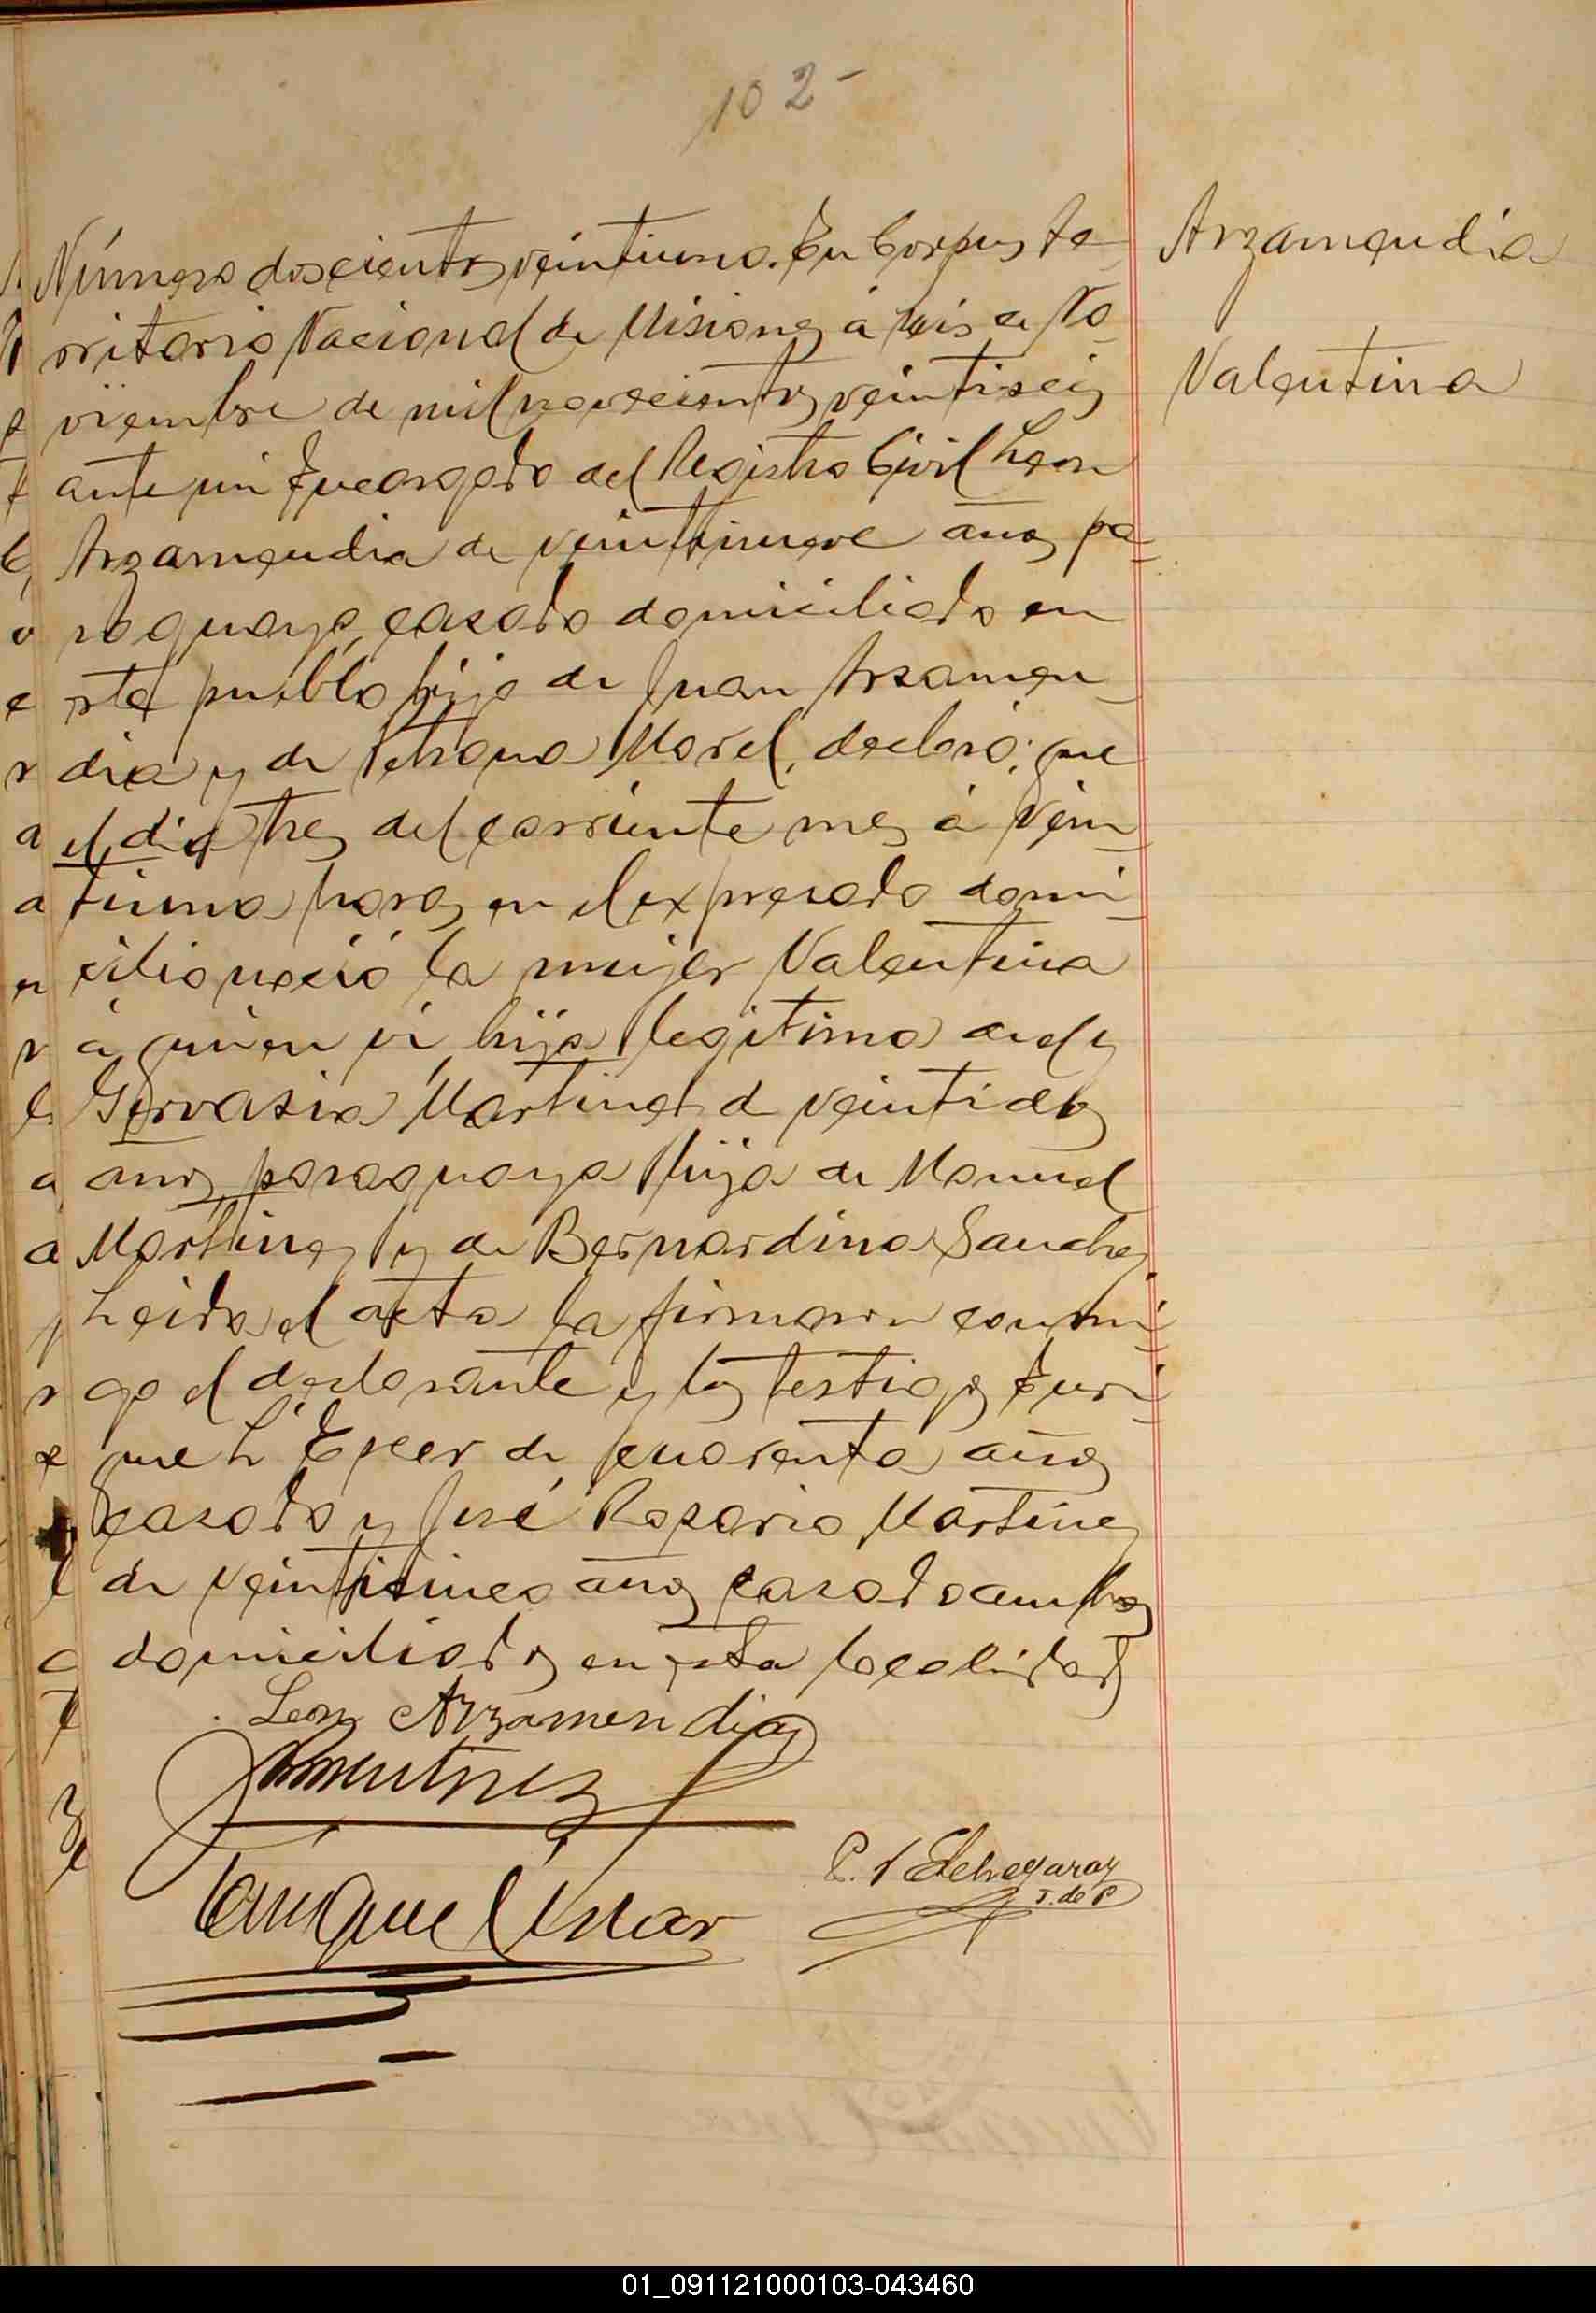 102-
Número doscientos veintiuno. En Corpus Te-
rritorio Nacional de Misiones á seis de No-
viembre de mil novecientos veintiseis
ante mi Encargado del Registro Civil Leon
Arzamendia de veintinueve años pa-
raguayo, casado domiciliado en
este pueblo hijo de Juan Arzamen-
dia y de Petrona Morel, declaró: que
el dia tres del corriente mes á vein-
tiuna horas en el expresado domi-
cilio nació la mujer Valentina
á quien vi, hija legitima de el y
Gervasia Martinez de veintidos
años paraguaya hija de Manuel
Martinez y de Bernardina Sanchez
Leida el acta la firmaron conmi-
go el declarante y los testigos Enri-
que L. de cuarenta años
casado y José Rosario Martínez
de veinticinco años casado ambos
domiciliados en esta localidad
Leon Arzamendia
P. Echegaray
J. de P
Enrique
Arzamendia
Valentina
01_091121000103-043460